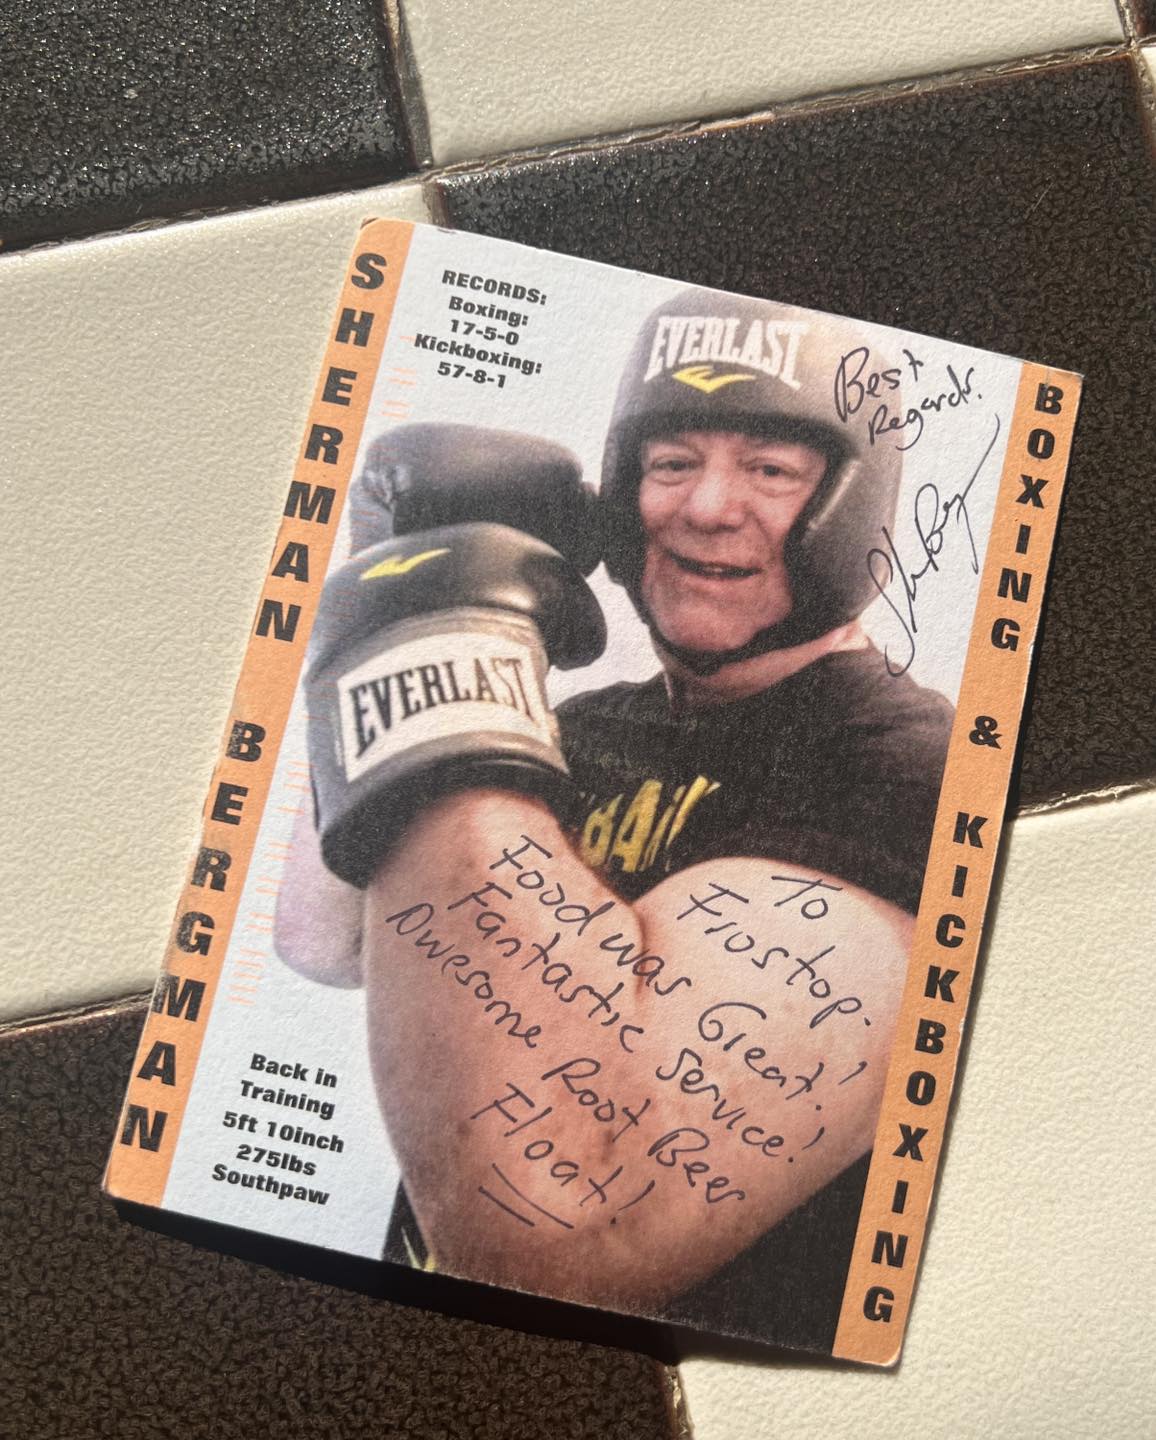 SHERMAN BERGMAN
RECORDS:
Boxing:
17-5-0
Kickboxing:
57-8-1
EVERLAST
Best
Regards.
EVERLAST
BOXING & KICKBOXING
To
Frostop.
Food was Great!
Fantastic Service!
Awesome Root Beer
Float!
Back in
Training
5ft 10inch
275lbs
Southpaw